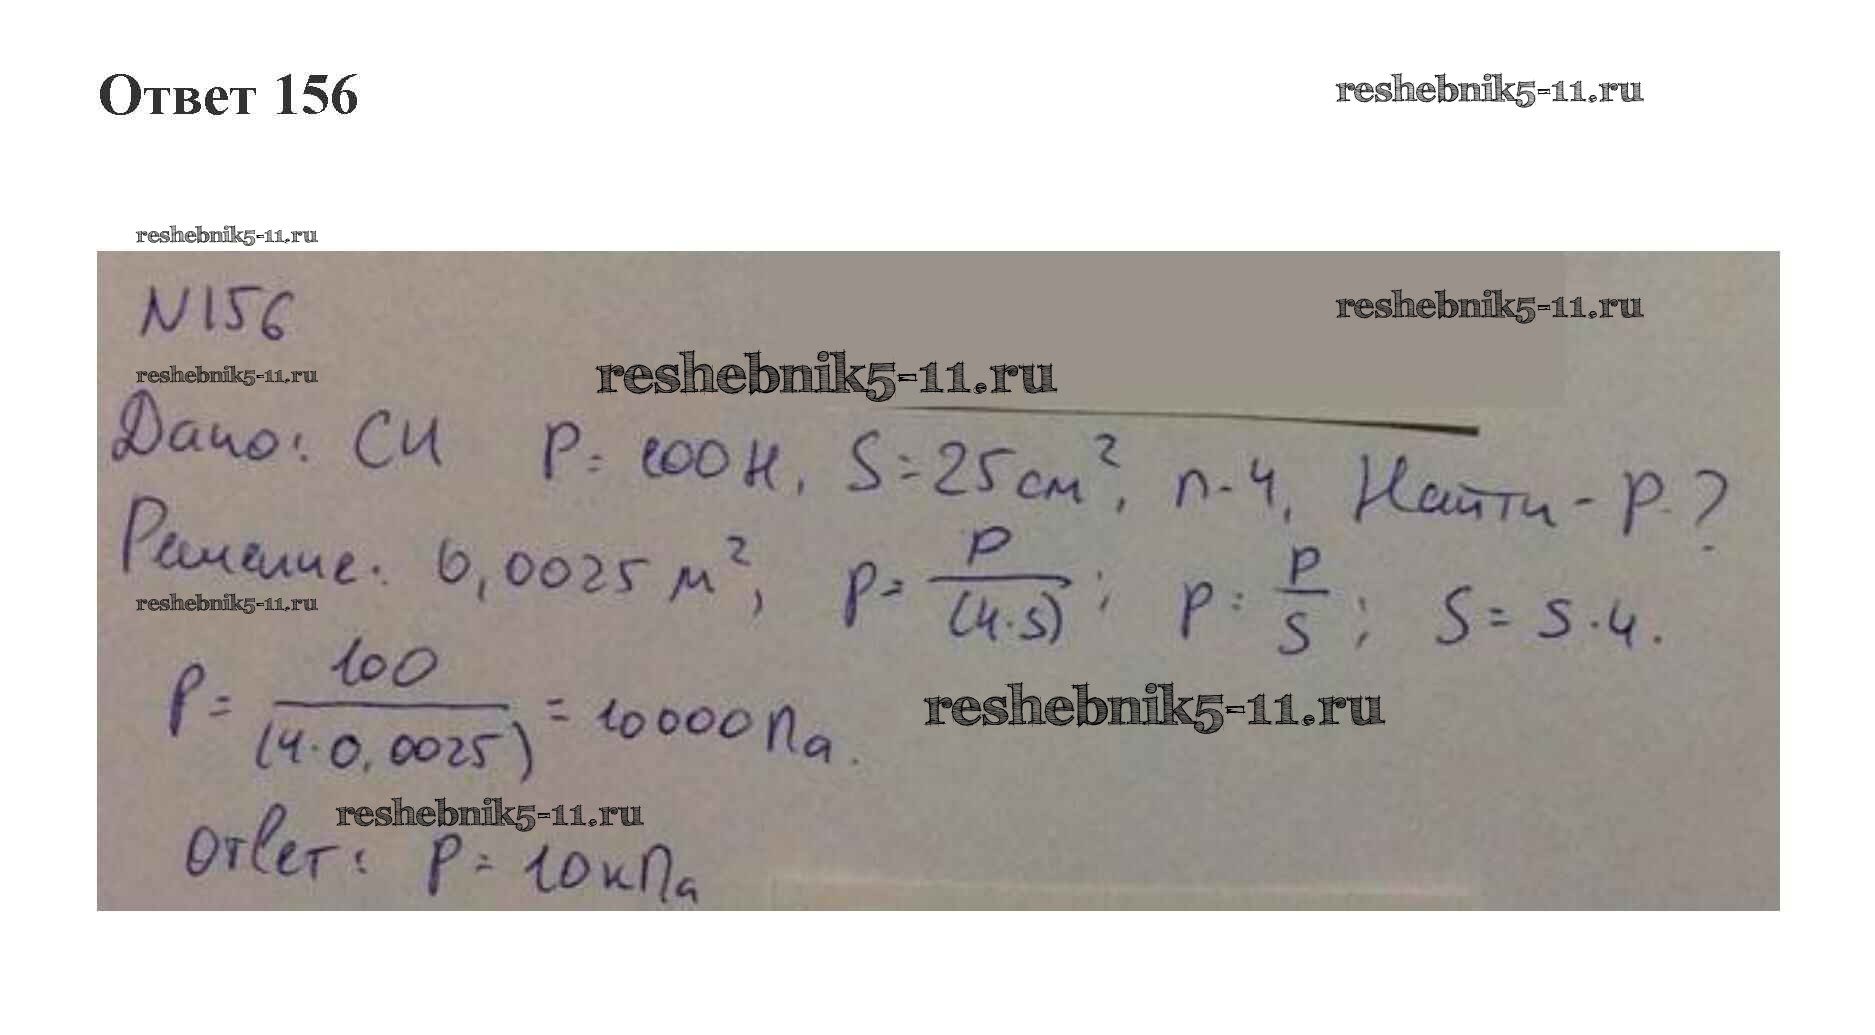 Ответ 156
reshebnik5-11.ru
reshebnik5-11.ru
N156
reshebnik5-11.ru
reshebnik5-11.ru
reshebnik5-11.ru
Дано: СИ P = 100 Н, S = 25 см², n - 4, Найти - p. ?
Решение: 0,0025 м², p = P/(4·S); p = P/S; S = S·4.
reshebnik5-11.ru
P = 100/(4·0,0025) = 10000 Па.
reshebnik5-11.ru
reshebnik5-11.ru
Ответ: P = 10 кПа